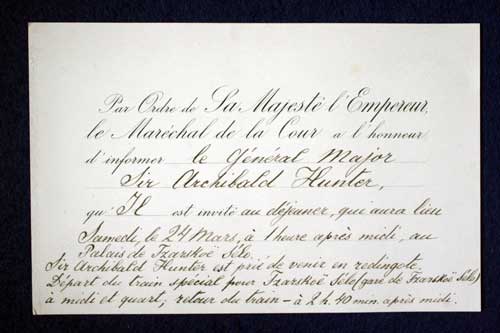 Par Ordre de Sa Majesté l'Empereur,
le Maréchal de la Cour a l'honneur
d'informer le Général Major
Sir Archibald Hunter,
qu'Il est invité au déjeuner, qui aura lieu
Samedi, le 24 Mars, à 1 heure après midi, au
Palais de Tzarskoë Sélo.
Sir Archibald Hunter est prié de venir en redingote.
Départ du train spécial pour Tzarskoë Sélo (gare de Tzarskoë Sélo)
à midi et quart, retour du train – à 2 h. 40 min. après midi.